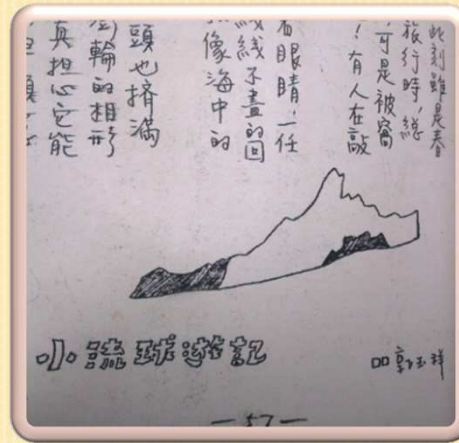 此刻雖是春
旅行時，總
可是被窗
！有人在敲
着眼睛！任
綫綫不盡的回
像海中的
頭也擠滿
輪的相形
真担心它能
小琉球遊記
郭玉祥
—57—